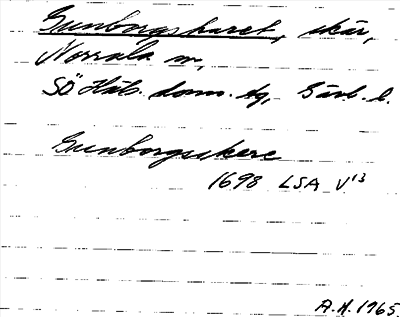 Gunborgskaret, skär,
Norrala sn,
SÖ Häls. doms. tg, Gävl. l.
Gunborgsskere
1698 LSA V¹³
A.H. 1965